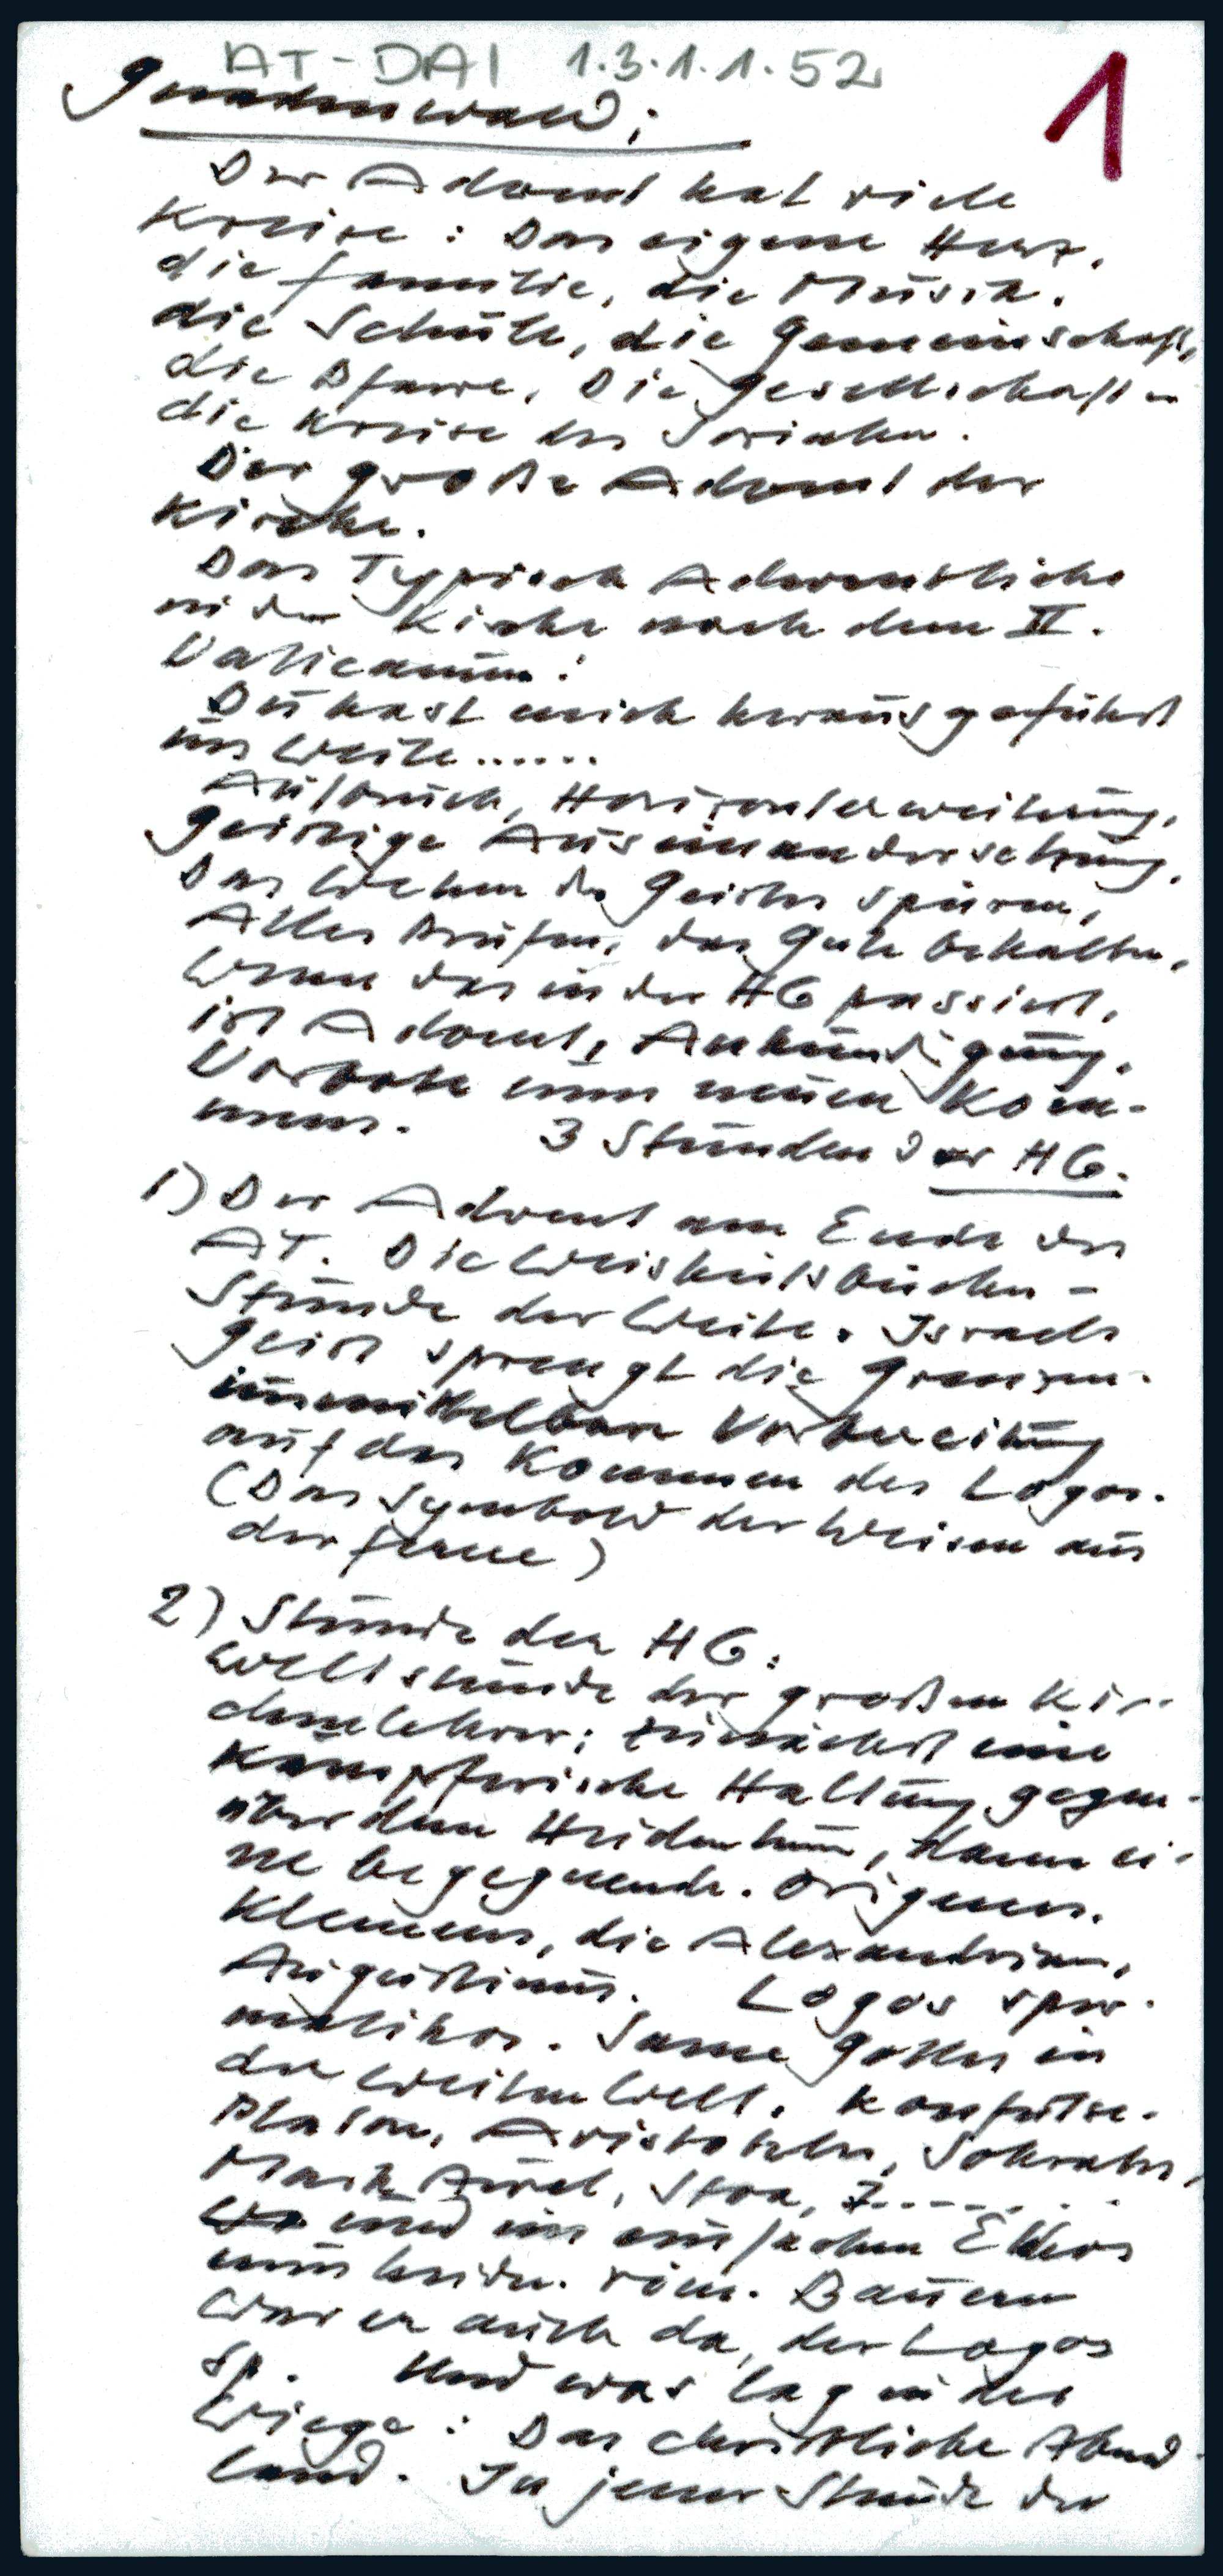 AT-DAI 1.3.1.1.52
1
Gnadenwald:
Der Advent hat viele
Kreise: Das eigene Herz,
die Familie, die Musik.
die Schule, die Gemeinschaft,
die Pfarre, Die Gesellschaft -
die Kreise des Sozialen.
Der große Advent der
Kirche.
Das Typisch Adventliche
in der Kirche nach dem II.
Vaticanum:
Du hast mich herausgeführt
ins Weite......
Aufbruch, Horizonterweiterung,
Geistige Auseinandersetzung,
Das Wehen des Geistes spüren,
Alles Prüfen, das Gute behalten,
Wenn das in der HG passiert,
ist Advent, Ankündigung,
Vorbote eines neuen Kom-
mens. 3 Stunden der HG.
1) Der Advent am Ende des
AT. Die Weisheitsbücher -
Stunde der Weite. Israels
Geist sprengt die Grenzen.
unmittelbare Vorbereitung
auf das Kommen des Logos.
(Das Symbol der Weisen aus
der Ferne)
2) Stunde der HG:
Weltstunde der großen Kir-
chenlehrer: zunächst eine
Kämpferische Haltung gegen-
über dem Heidentum, dann ei-
ne begegnende. Origenes.
Klemens, die Alexandriner,
Augustinus. Logos sper-
matikos. Same Gottes in
der weiten Welt. Konfutse.
Platon, Aristoteles, Sokrates,
Mark Aurel, Stoa, 7.......
und im einfachen Ethos
eines heidn. röm. Bauern
war er auch da, der Logos
sp. Und was lag in der
Wiege: Das christliche Abend-
land. In jener Stunde der